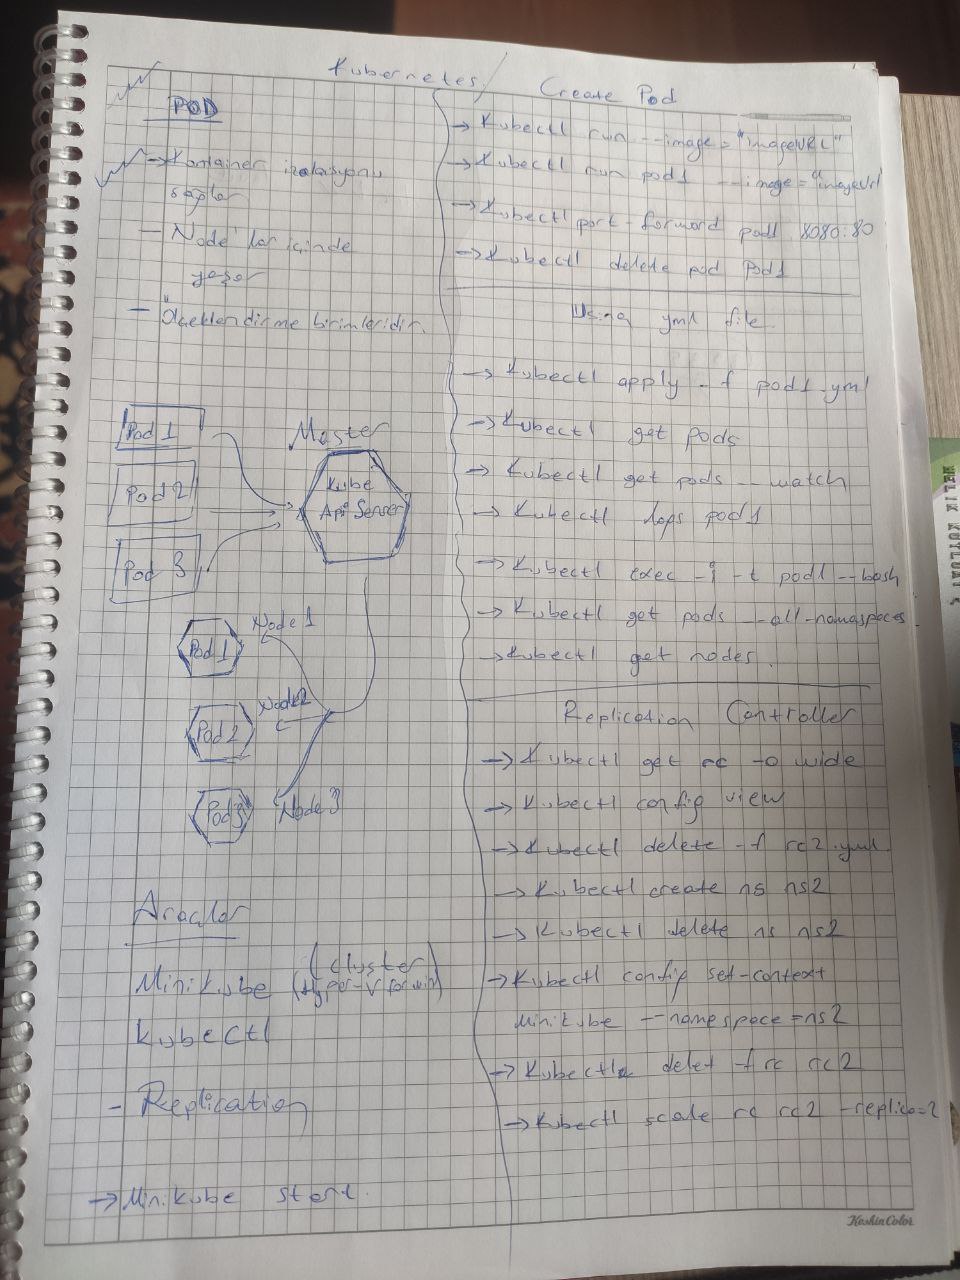 Kubernetes/
POD
→ Kontainer izolasyonu
sağlar
- Node'lar içinde
yaşar
- Ölçeklendirme birimleridir.
Pod 1
Pod 2
Pod 3
Master
Kube
Api Server
Node 1
Pod 1
Node 2
Pod 2
Node 3
Pod 3
Araçlar
Minikube (cluster)
(Hyper-V for win)
Kubectl
- Replication
→ Minikube start.
Create Pod
→ Kubectl run --image="imageURL"
→ Kubectl run pod1 --image="imageUrl
→ Kubectl port-forward pod1 8080:80
→ Kubectl delete pod Pod1
Using yml file.
→ Kubectl apply -f pod1.yml
→ Kubectl get pods
→ Kubectl get pods --watch
→ Kubectl logs pod1
→ Kubectl exec -i -t pod1 --bash
→ Kubectl get pods --all-namespaces
→ Kubectl get nodes.
Replication Controller
→ Kubectl get rc -o wide
→ Kubectl config view
→ Kubectl delete -f rc2.yml.
→ Kubectl create ns ns2
→ Kubectl delete ns ns2
→ Kubectl config set-context
Minikube --namespace=ns2
→ Kubectl delet -f rc rc2
→ Kubectl scale rc rc2 -replica=2
KashinColor